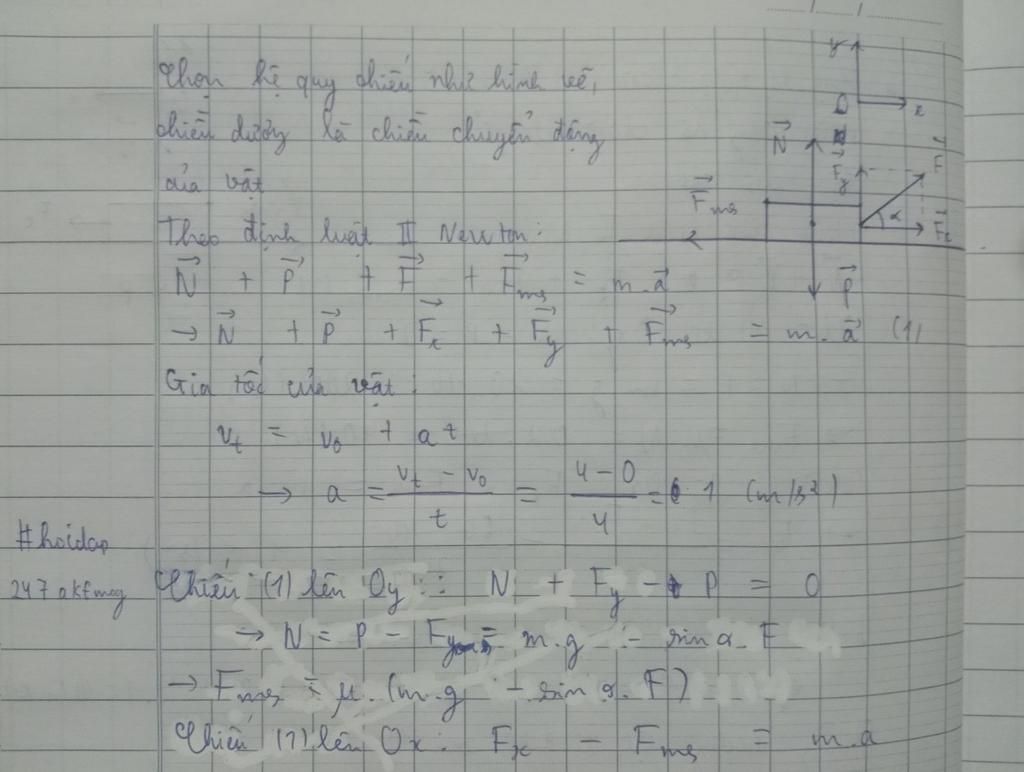 Chọn hệ quy chiếu như hình vẽ,
chiều dương là chiều chuyển động
của vật
Theo định luật II Newton:
N⃗ + P⃗ + F⃗ + F⃗ms = m.a⃗
→ N⃗ + P⃗ + F⃗x + F⃗y + F⃗ms = m.a⃗ (1)
Gia tốc của vật:
vt = v0 + at
→ a = (vt - v0)/t = (4 - 0)/4 = 1 (m/s²)
Chiếu (1) lên Oy: N + Fy - P = 0
→ N = P - Fy = m.g - sin α. F
→ Fms = μ. (m.g - sin α. F)
Chiếu (1) lên Ox: Fx - Fms = m.a
#hoidap
247
y
O
x
N⃗
F⃗y
F⃗
F⃗ms
α
F⃗x
P⃗